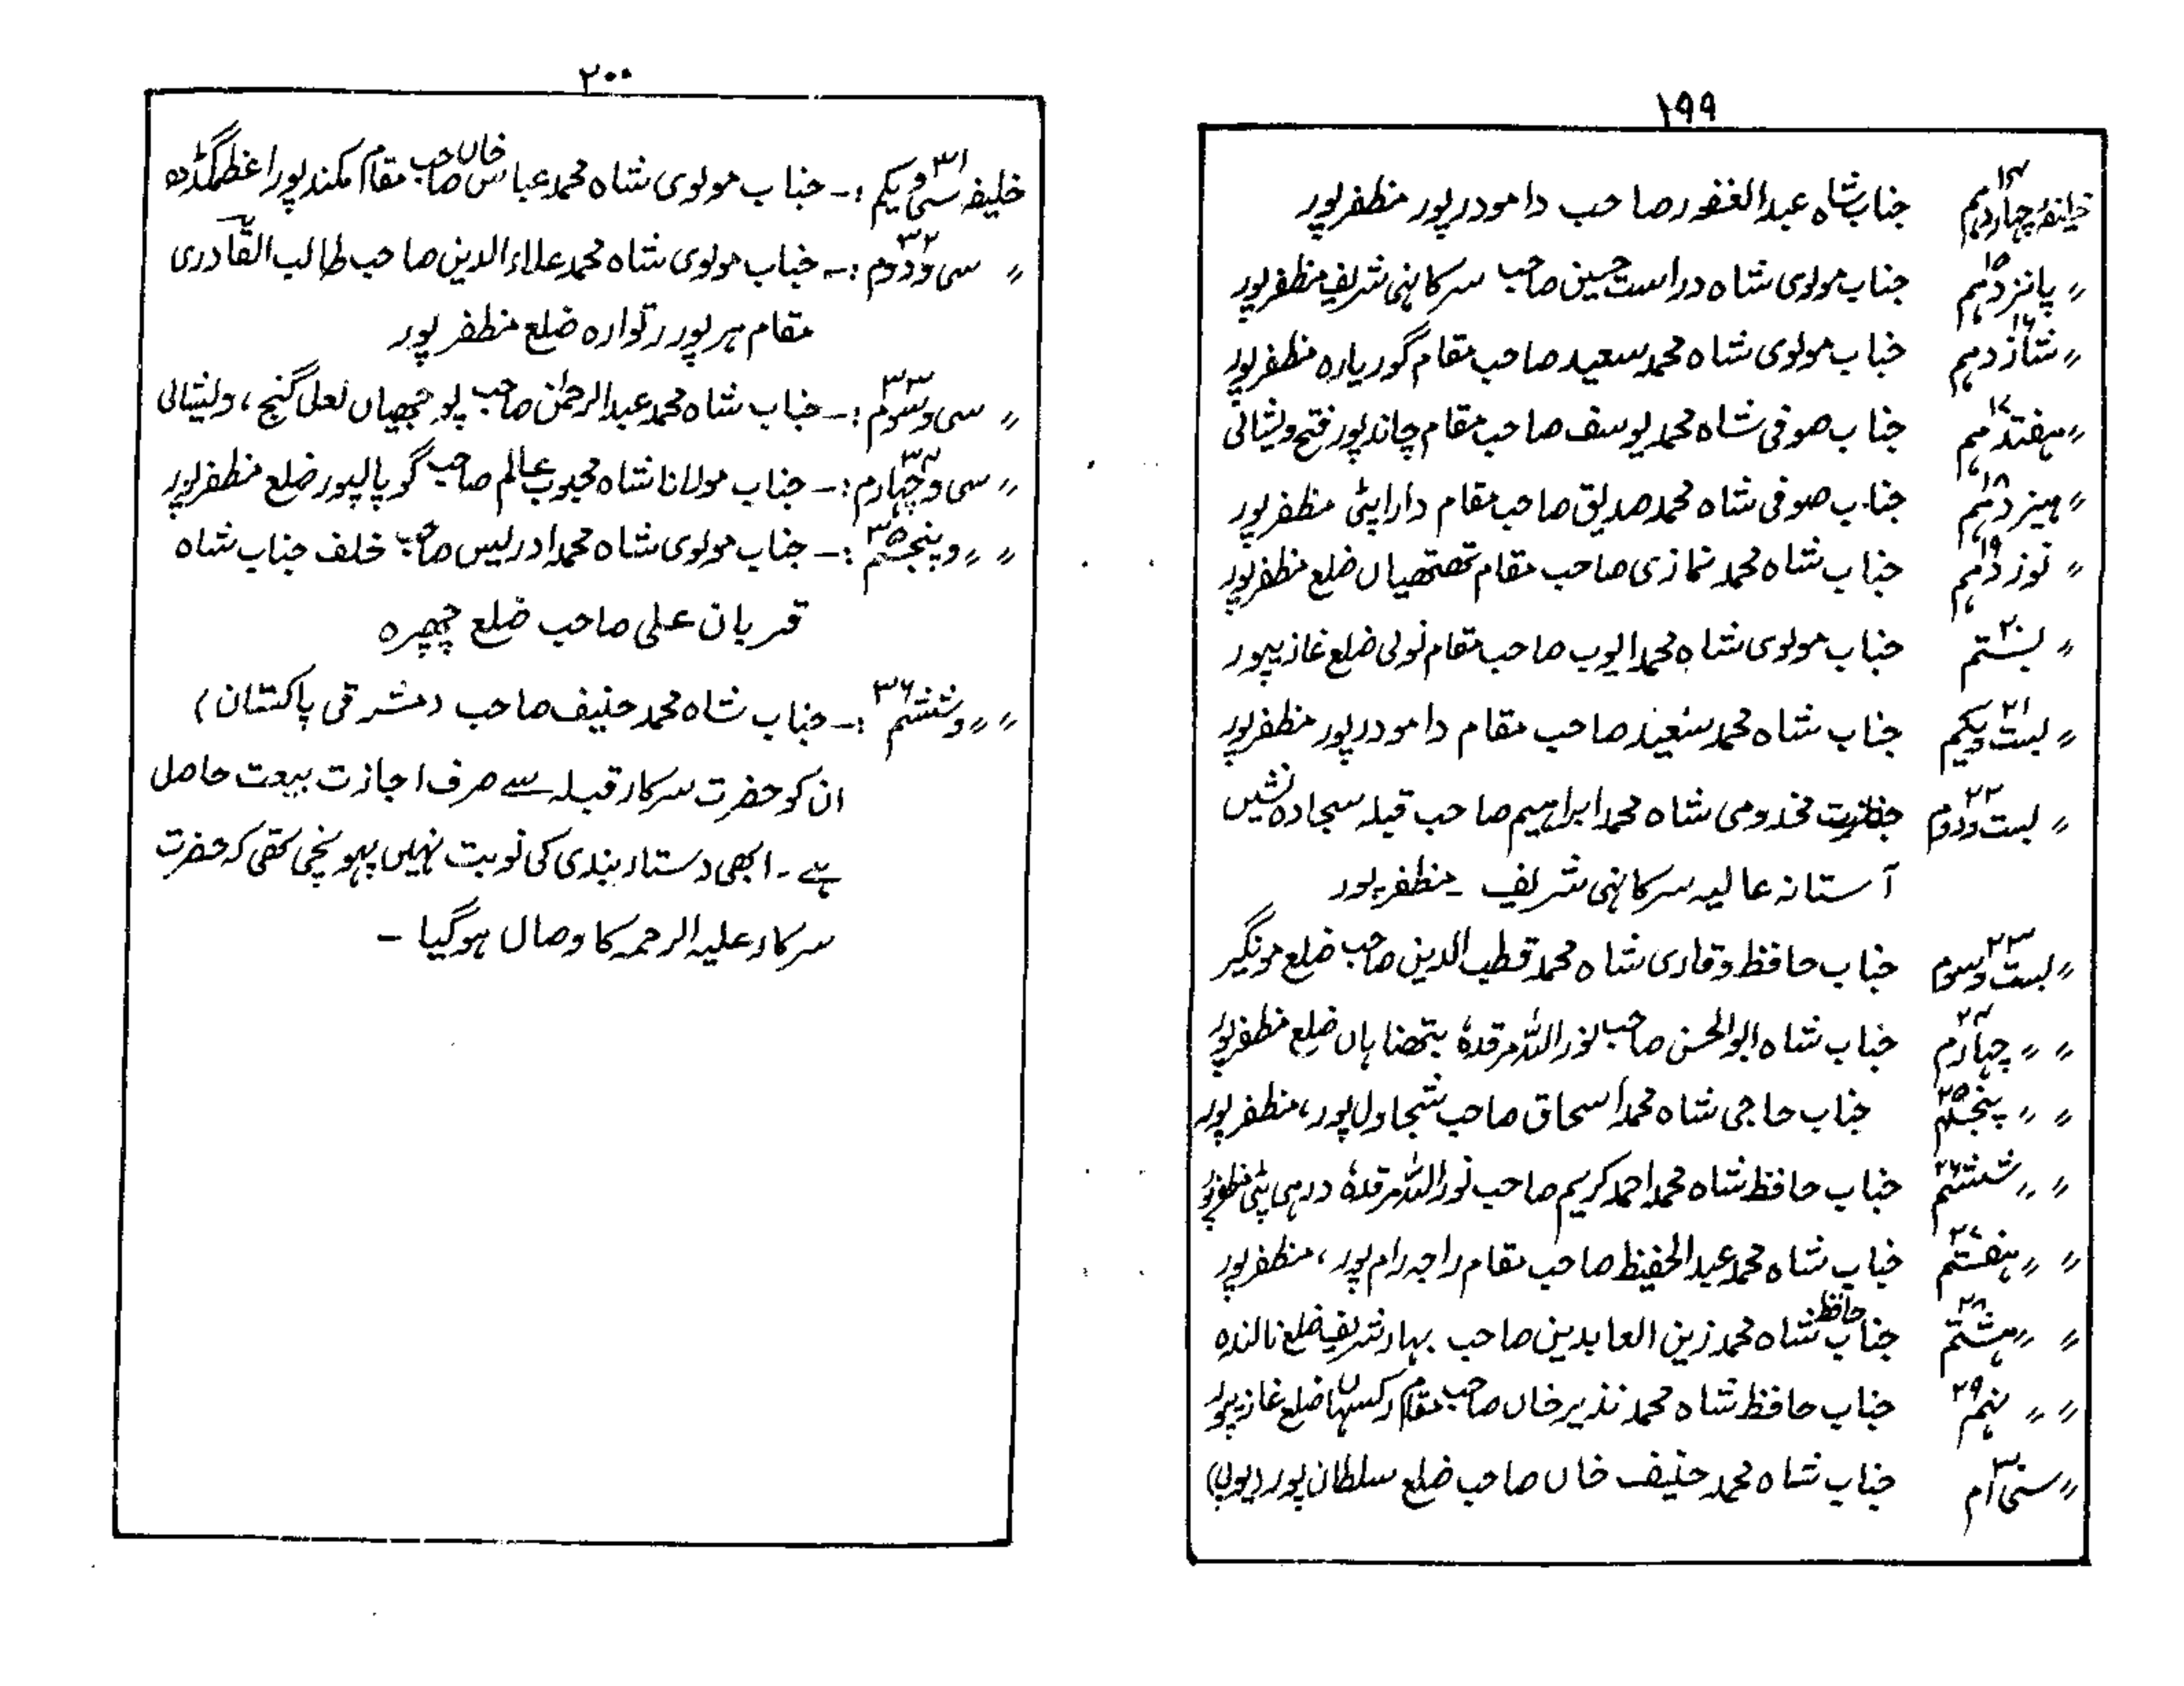 ۱۹۹
خلیفہ چہاردہم ۱۴ جناب شاہ عبدالغفور صاحب دامودرپور مظفرپور
〃 پانزدہم ۱۵ جناب مولوی شاہ دراست حسین صاحب سرکانہی شریف مظفرپور
〃 شانزدہم ۱۶ جناب مولوی شاہ محمد سعید صاحب مقام گوریارہ مظفرپور
〃 ہفتدہم ۱۷ جناب صوفی شاہ محمد یوسف صاحب مقام چاندپور فتح ویشالی
〃 ہیزدہم ۱۸ جناب صوفی شاہ محمد صدیق صاحب مقام داراپٹی مظفرپور
〃 نوزدہم ۱۹ جناب شاہ محمد نمازی صاحب مقام تھتھیاں ضلع مظفرپور
〃 بستم ۲۰ جناب مولوی شاہ محمد ایوب صاحب مقام نولی ضلع غازیپور
〃 بست ویکم ۲۱ جناب شاہ محمد سعید صاحب مقام دامودرپور مظفرپور
〃 بست ودوم ۲۲ حضرت مخدومی شاہ محمد ابراہیم صاحب قبلہ سجادہ نشیں
آستانہ عالیہ سرکانہی شریف ۔ مظفرپور
〃 بست وسوم ۲۳ جناب حافظ وقاری شاہ محمد قطب الدین صاحب ضلع مونگیر
〃 〃 چہارم ۲۴ جناب شاہ ابوالحسن صاحب نوراللہ مرقدہٗ بتھناہاں ضلع مظفرپور
〃 〃 پنجم ۲۵ جناب حاجی شاہ محمد اسحاق صاحب شجاول پور، مظفرپور
〃 〃 ششم ۲۶ جناب حافظ شاہ محمد احمد کریم صاحب نوراللہ مرقدہٗ درہی پٹی مظفرپور
〃 〃 ہفتم ۲۷ جناب شاہ محمد عبدالحفیظ صاحب مقام راجہ رام پور، مظفرپور
〃 〃 ہشتم ۲۸ جناب حافظ شاہ محمد زین العابدین صاحب بہار شریف ضلع نالندہ
〃 〃 نہم ۲۹ جناب حافظ شاہ محمد نذیر خاں صاحب مقام ضلع غازیپور
〃 سی ام ۳۰ جناب شاہ محمد حنیف خاں صاحب ضلع سلطان پور (یوپی)
۲۰۰
خلیفہ سی ویکم ۳۱ :۔ جناب مولوی شاہ محمد عباس خاں صاحب مقام مکندپور اعظمگڈھ
〃 سی ودوم ۳۲ :۔ جناب مولوی شاہ محمد علاءالدین صاحب طالب القادری
مقام ہرپور رتوارہ ضلع مظفرپور
〃 سی وسوم ۳۳ :۔ جناب شاہ محمد عبدالرحمٰن صاحب پوجھیاں لعل گنج، ویشالی
〃 سی وچہارم ۳۴ :۔ جناب مولانا شاہ محبوب عالم صاحب گوپالپور ضلع مظفرپور
〃 〃 وپنجم ۳۵ :۔ جناب مولوی شاہ محمد ادریس صاحب خلف جناب شاہ
قربان علی صاحب ضلع چھپرہ
〃 〃 وششم ۳۶ :۔ جناب شاہ محمد حنیف صاحب (مشرقی پاکستان)
ان کو حضرتِ سرکار قبلہ سے صرف اجازت بیعت حاصل
ہے ۔ ابھی دستاربندی کی نوبت نہیں پہونچی تھی کہ حضرت
سرکار علیہ الرحمہ کا وصال ہوگیا ۔